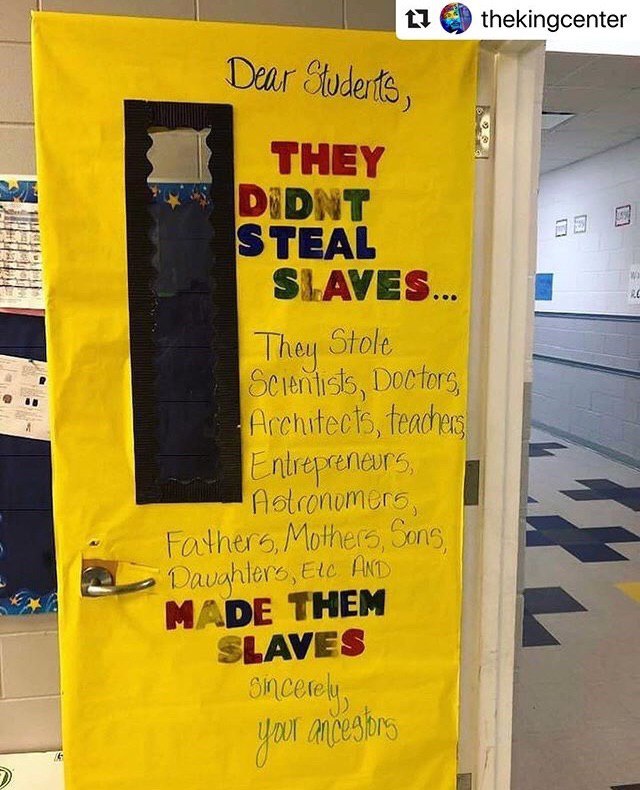 thekingcenter
Dear Students,
THEY
DIDNT
STEAL
SLAVES...
They Stole
Scientists, Doctors,
Architects, teachers,
Entrepreneurs,
Astronomers,
Fathers, Mothers, Sons,
Daughters, Etc AND
MADE THEM
SLAVES
Sincerely,
your ancestors